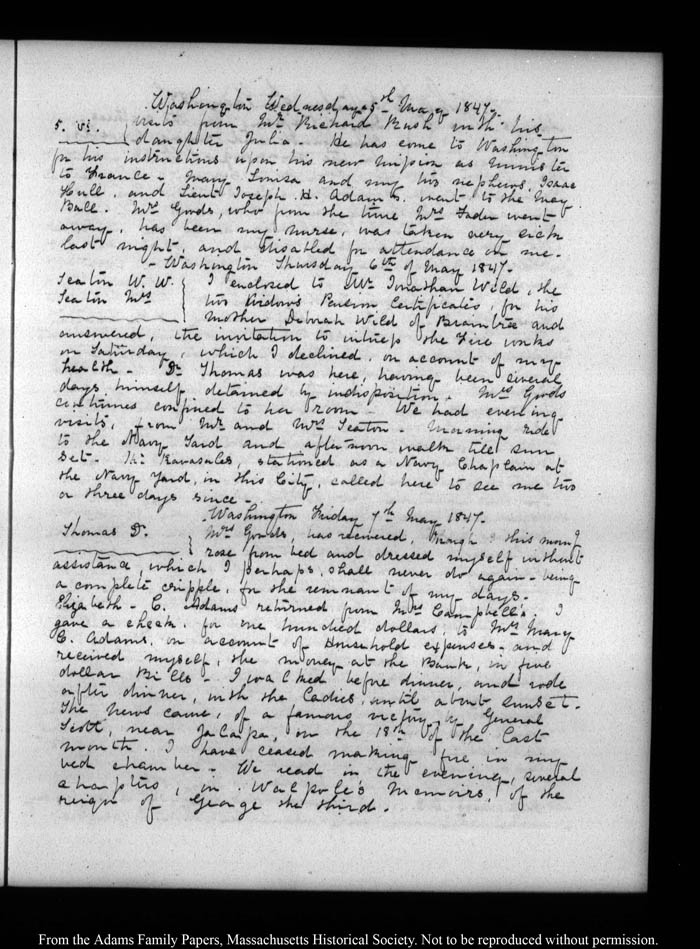 Washington Wednesday 5th May 1847.
5. vi. visits from Mr Richard Rush with his
daughter Julia. He has come to Washington
for his instructions upon his new mission as Minister
to France - Mary Louisa and my two nephews, Isaac
Hull, and Lieut Joseph. H. Adams, went to the May
Ball. Mrs Goods, who from the time Mrs went
away, has been my nurse, was taken very sick
last night, and disabled for attendance on me.
- Washington Thursday 6th of May 1847.
Seaton W. W. I enclosed to Mr Jonathan Wild, the
Seaton Mrs two Widow's Pension Certificates, for his
mother Deborah Wild of Braintree and
answered, the invitation to witness the Fire works
on Saturday, which I declined, on account of my
health - Dr Thomas was here, having been several
days himself detained by indisposition. Mrs Goods
continues confined to her room - We had evening
visits, from Mr and Mrs Seaton. Morning ride
to the Navy Yard and afternoon walk till sun
set. Mr stationed as a Navy Chaplain at
the Navy Yard, in this City, called here to see me two
or three days since -
Washington Friday 7th May 1847.
Thomas Dr. Mrs Goods, has recovered, though I this morng
rose from bed and dressed myself without
assistance, which I perhaps, shall never do again - being
a complete cripple, for the remnant of my days -
Elizabeth - C. Adams returned from Mrs Campbell's. I
gave a check, for one hundred dollars, to Mrs Mary
C. Adams, on account of Household expenses, and
received myself, the money at the Bank, in five
dollar Bills - I walked before dinner, and rode
after dinner, with the Ladies, until about sunset -
The news came, of a famous victory by General
Scott, near Jalapa, on the 18th of the last
month. I have ceased making fire in my
bed chamber - We read in the evening, several
chapters, in Walpole's Memoirs, of the
reign of George the third.
From the Adams Family Papers, Massachusetts Historical Society. Not to be reproduced without permission.